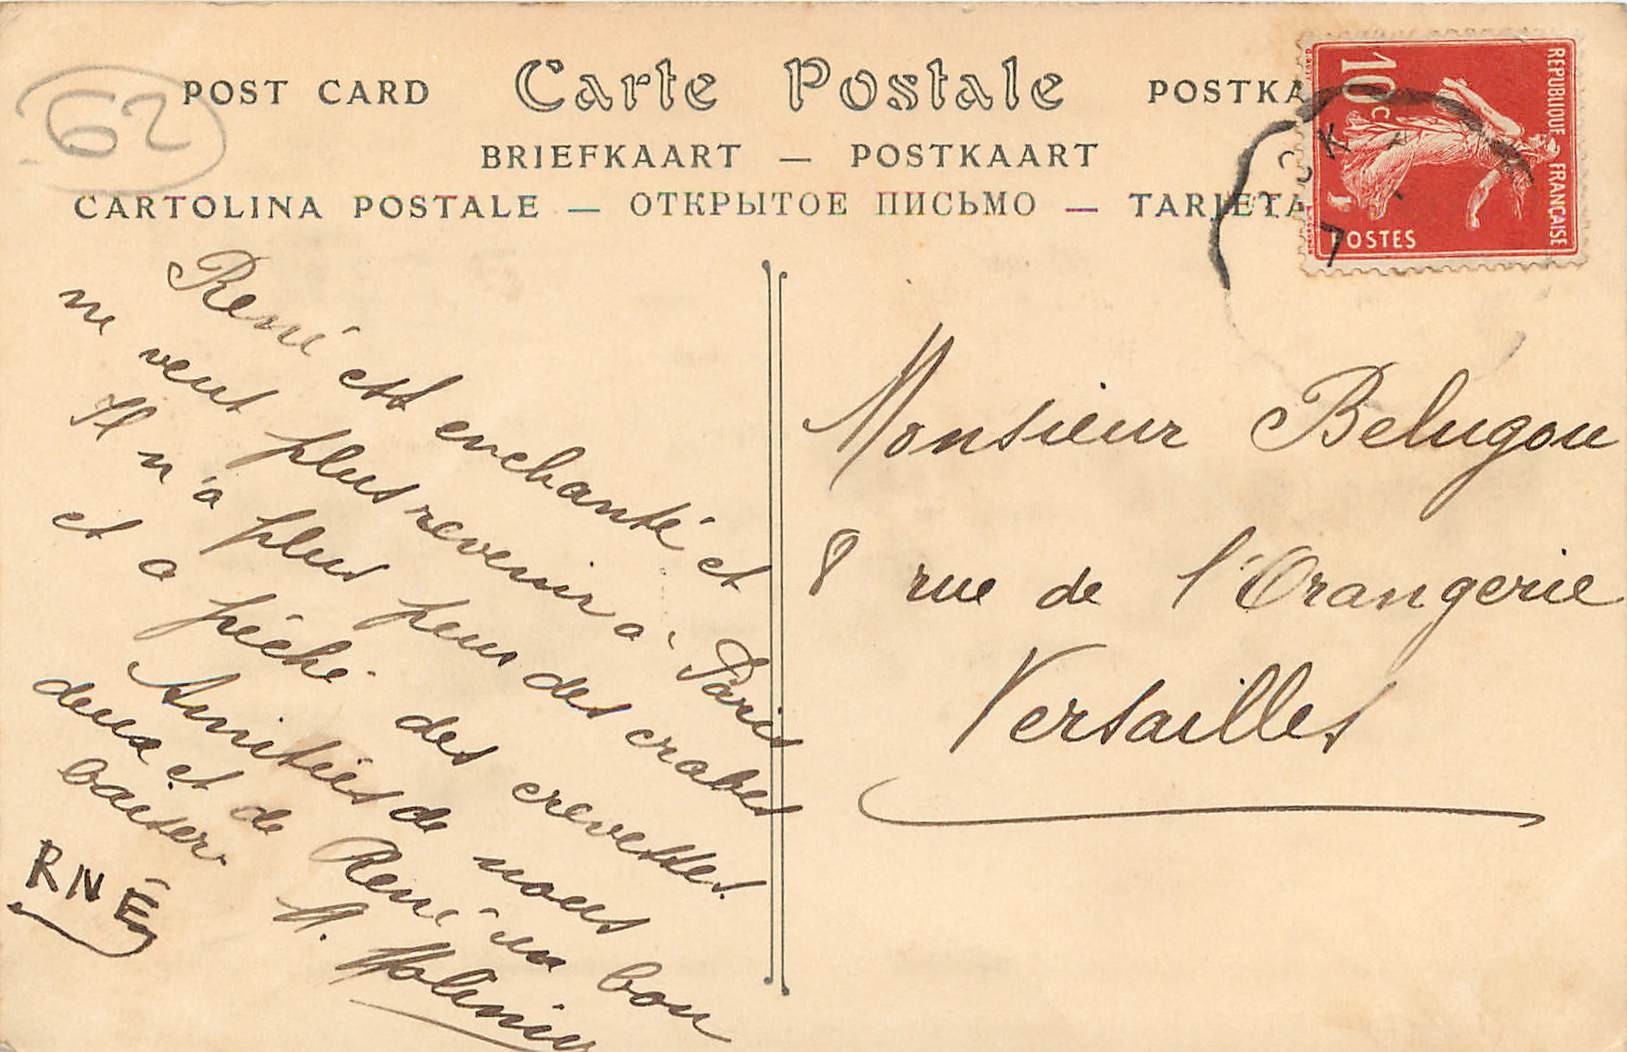 62
POST CARD Carte Postale POSTKA
BRIEFKAART — POSTKAART
CARTOLINA POSTALE — ОТКРЫТОЕ ПИСЬМО — TARJETA
10c
REPUBLIQUE FRANÇAISE
POSTES
7
René est enchanté et
ne veut plus revenir à Paris
Il n'a plus peur des crabes
et a pêché des crevettes.
Amitiés de nous
deux et de René un bon
baiser
M. Molinier
RNÉ
Monsieur Belugou
8 rue de l'Orangerie
Versailles